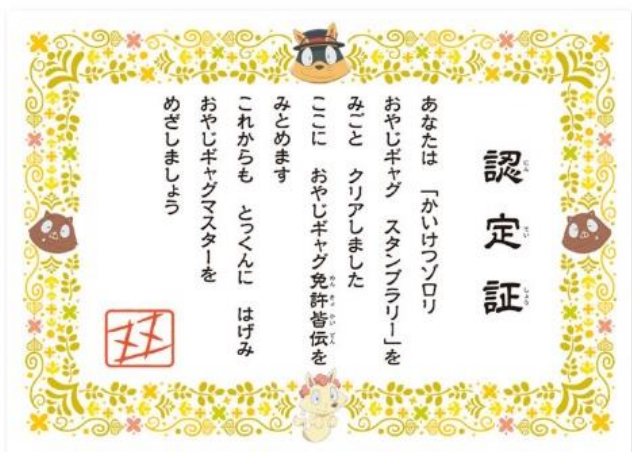 認定証
あなたは 「かいけつゾロリ
おやじギャグ スタンプラリー」を
みごと クリアしました
ここに おやじギャグ免許皆伝を
みとめます
これからも とっくんに はげみ
おやじギャグマスターを
めざしましょう